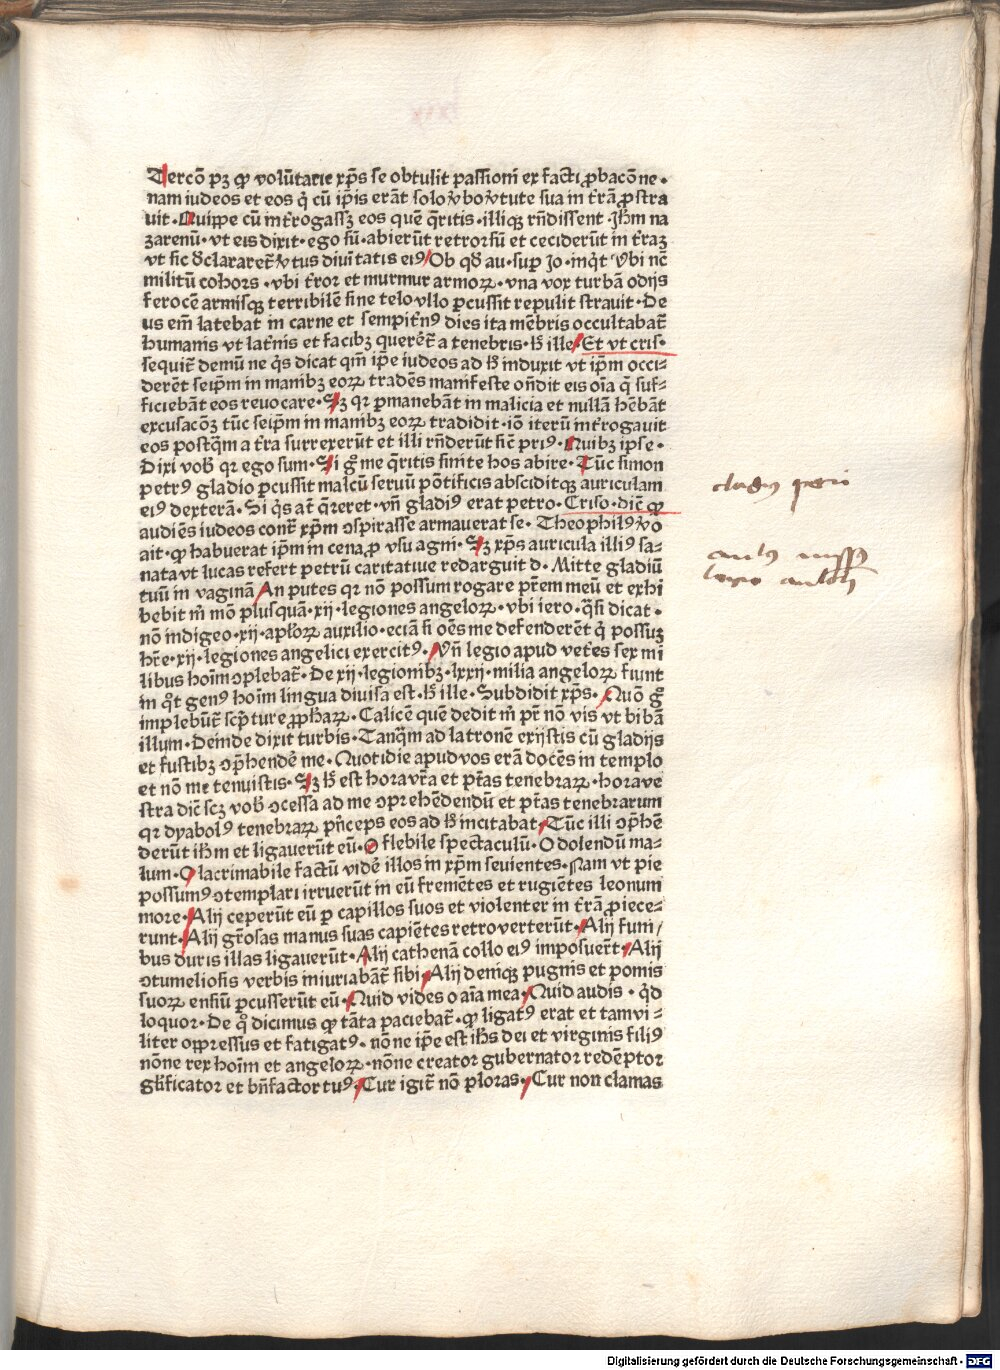 Tercō pꝫ ꝙ volūtarie xp̄s se obtulit passiōni ex facti ꝓbacōne·
nam iudeos et eos q̇ cū ip̄is erāt solo v̾bo v̾tute sua in t̄rā ꝓstra
uit· Quippe cū int̄rogassꝫ eos quē q̄ritis· illiqꝫ rn̄dissent· Jhm̄ na
zarenū· vt eis dixit· ego sū· abierūt retrorsū et ceciderūt in t̄raꝫ
vt sic d̾clararet᷑ v̾tus diuinitatis eiꝰ Ob qd̾ au· suꝑ Jo· inq̇t Vbi nc̄
militū cohors· vbi t̄ror et murmur armoꝝ· vna vox turbā odijs
ferocē armisqꝫ terribilē sine telo vllo ꝑcussit repulit strauit· De
us em̄ latebat in carne et sempit̄nꝰ dies ita mēbris occultabat᷑
humanis vt lat̄nis et facibꝫ querēt᷑ a tenebris· h̾ ille Et vt cris·
sequit᷑ demū ne q̇s dicat qm̄ ip̄e iudeos ad h̾ induxit vt ip̄m occi⸗
derēt seip̄m in manibꝫ eoꝝ tradēs manifeste on̄dit eis oīa q̄ suf⸗
ficiebāt eos reuocare· Sꝫ qr ꝑmanebāt in malicia et nullā hēbāt
excusacōꝫ tūc seip̄m in manibꝫ eoꝝ tradidit· iō iterū int̄rogauit
eos postq̄m a t̄ra surrexerūt et illi rn̄derūt sic̄ priꝰ· Quibꝫ ipse·
Dixi vob̾ qr ego sum· Si gͦ me q̄ritis sinite hos abire· Tūc simon
petrꝰ gladio ꝑcussit malcū seruū pōtificis absciditqꝫ auriculam
eiꝰ dexterā· Si q̇s at᷑ q̄reret· vn̄ gladiꝰ erat petro· Criso· dic̄ ꝙ
audiēs iudeos cont᷑ xp̄m ꝯspirasse armauerat se· Theophilꝰ v̾o
ait· ꝙ habuerat ip̄m in cena ꝓ vsu agni· Sꝫ xp̄s auricula illiꝰ sa⸗
nata vt lucas refert petrū caritatiue redarguit d̾· Mitte gladiū
tuū in vaginā An putes qr nō possum rogare pr̄em meū et exhi
bebit ṁ mō plusquā·xij·legiones angeloꝝ· vbi iero· q̄si dicat·
nō indigeo·xij·apl̾oꝝ auxilio· eciā si oēs me defenderēt q̇ possuꝫ
hr̄e·xij·legiones angelici exercitꝰ· Vn̄ legio apud vet̄es sex mi
libus hoīm ꝯplebat᷑· De xij·legionibꝫ·lxxij·milia angeloꝝ fiunt
in q̇t genꝰ hoīm lingua diuisa est· h̾ ille· Subdidit xp̄s· Quō gͦ
implebūt᷑ scp̄ture ꝓph̾aꝝ· Calicē quē dedit ṁ pr̄ nō vis vt bibā
illum· Deinde dixit turbis· Tanq̄m ad latronē exijstis cū gladijs
et fustibꝫ ꝯp̄hendē me· Quotidie apud vos erā docēs in templo
et nō me tenuistis· Sꝫ h̾ est hora vr̄a et pt̄as tenebraꝝ· hora ve
stra dic̄ scꝫ vob̾ ꝯcessa ad me ꝯprehēdendū et pt̄as tenebrarum
qr dyabolꝰ tenebraꝝ pn̄ceps eos ad h̾ incitabat· Tūc illi ꝯp̄hē
derūt ih̄m et ligauerūt eū· O flebile spectaculū· O dolendū ma⸗
lum· O lacrimabile factū vidē illos in xp̄m seuientes· Nam vt pie
possumꝰ ꝯtemplari irruerūt in eū fremētes et rugiētes leonum
more· Alij ceperūt eū ꝑ capillos suos et violenter in t̄rā ꝓiece⸗
runt· Alij gr̄osas manus suas capiētes retro verterūt· Alij funi/
bus duris illas ligauerūt· Alij cathenā collo eiꝰ imposuer̄t· Alij
ꝯtumeliosis verbis iniuriabāt᷑ sibi· Alij deniqꝫ pugnis et pomis
suoꝝ ensiū ꝑcusserūt eū· Quid vides o aīa mea· Quid audis· qd̾
loquor· De qͦ dicimus ꝙ tāta paciebat᷑· ꝙ ligatꝰ erat et tam vi⸗
liter oppressus et fatigatꝰ· nōne ip̄e est ih̄s dei et virginis filiꝰ
nōne rex hoīm et angeloꝝ· nōne creator gubernator redēptor
gl̾ificator et bn̄factor tuꝰ· Cur igit᷑ nō ploras· Cur non clamas
Digitalisierung gefördert durch die Deutsche Forschungsgemeinschaft - DFG